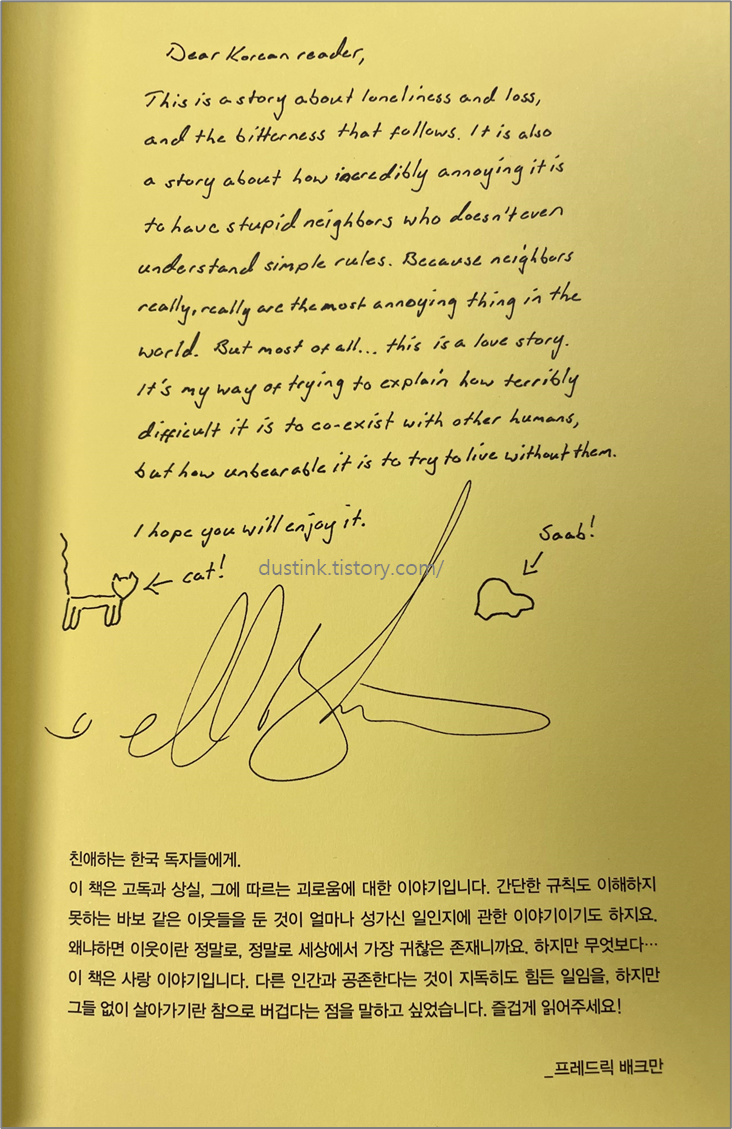 Dear Korean reader,
This is a story about loneliness and loss,
and the bitterness that follows. It is also
a story about how incredibly annoying it is
to have stupid neighbors who doesn't even
understand simple rules. Because neighbors
really, really are the most annoying thing in the
world. But most of all... this is a love story.
It's my way of trying to explain how terribly
difficult it is to co-exist with other humans,
but how unbearable it is to try to live without them.
I hope you will enjoy it.
Saab!
cat!
dustink.tistory.com/
친애하는 한국 독자들에게.
이 책은 고독과 상실, 그에 따르는 괴로움에 대한 이야기입니다. 간단한 규칙도 이해하지
못하는 바보 같은 이웃들을 둔 것이 얼마나 성가신 일인지에 관한 이야기이기도 하지요.
왜냐하면 이웃이란 정말로, 정말로 세상에서 가장 귀찮은 존재니까요. 하지만 무엇보다…
이 책은 사랑 이야기입니다. 다른 인간과 공존한다는 것이 지독히도 힘든 일임을, 하지만
그들 없이 살아가기란 참으로 버겁다는 점을 말하고 싶었습니다. 즐겁게 읽어주세요!
_프레드릭 배크만